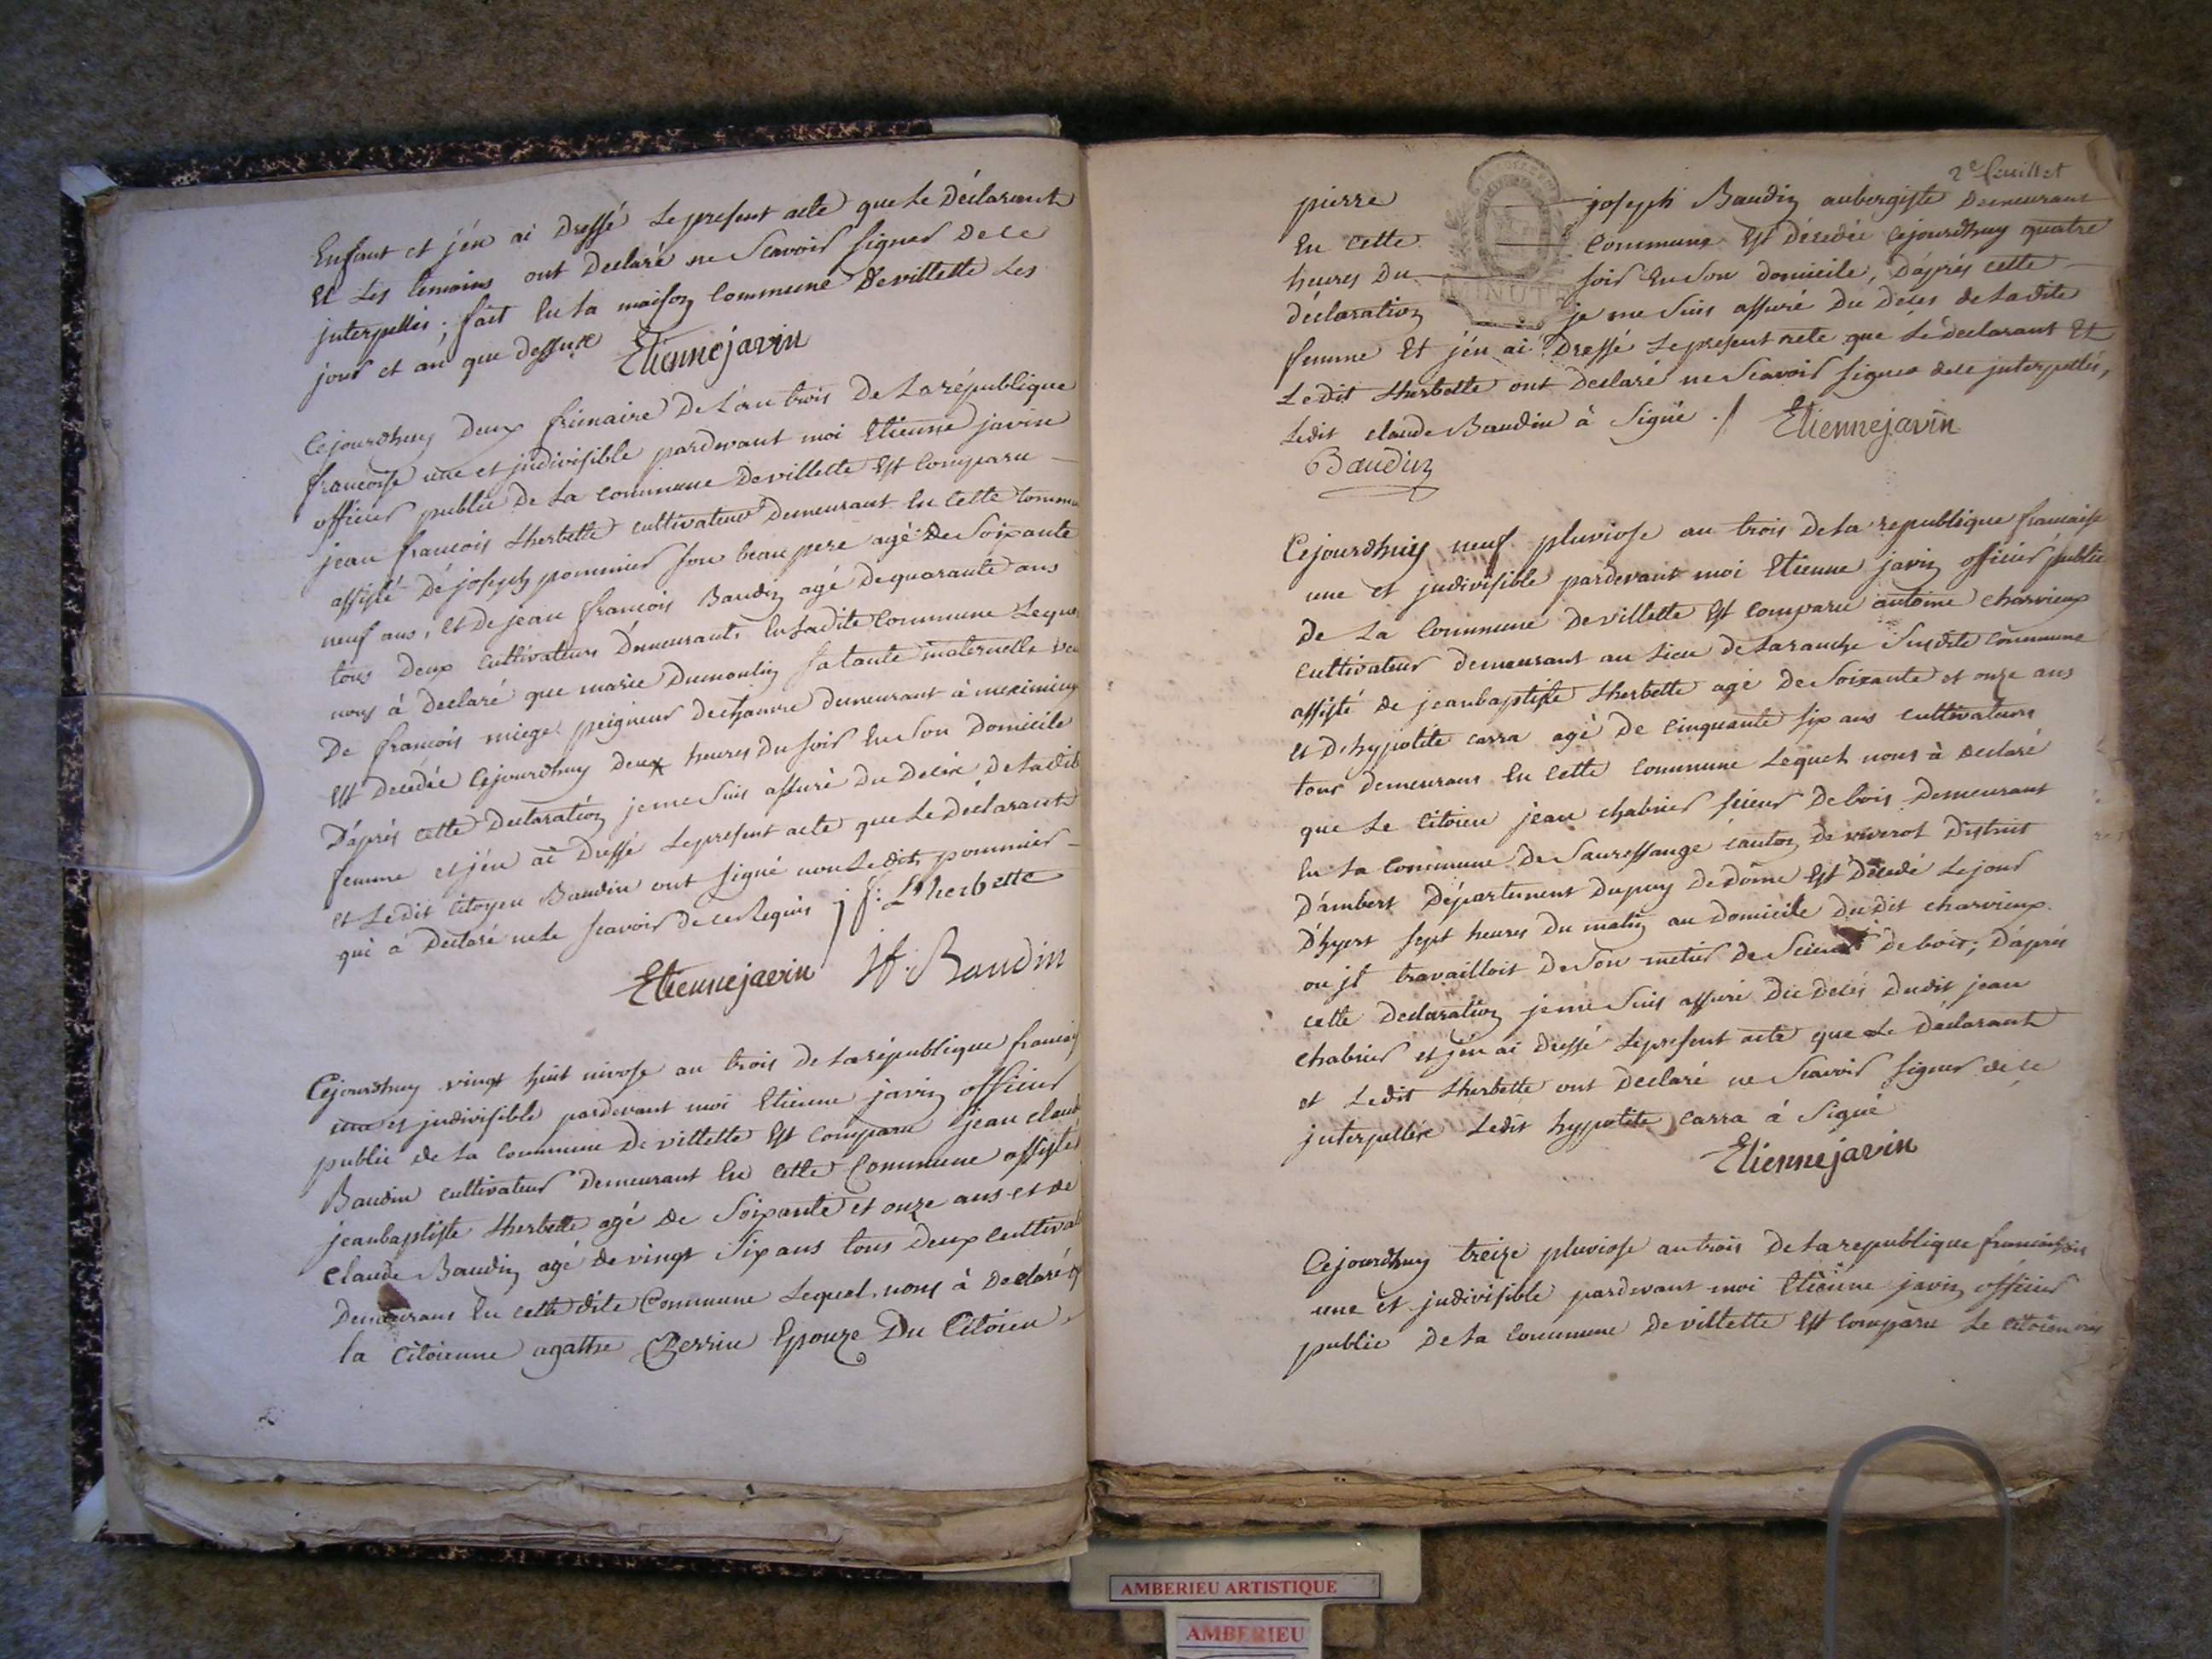 Enfant et j'én ai Dressé Le present acte que Le Déclarant
Et Les temoins ont Declaré ne Scavoir signer de ce
jnterpellés ; fait En La maison Commune De villette Les
jour et an que dessus Etiennejavin
Cejourdhuy Deux frimaire De L'an trois De La république
francoise une et jndivisible pardevant moi Etienne javin
officier public De La commune De villette Est Comparu
jean francois Lherbette cultivateur Demeurant En Cette Commu
assisté De joseph pommier son beau pere agé De Soixante
neuf ans, Et De jean francois Baudin agé De quarante ans
tous Deux cultivateurs Demeurants En Ladite Commune Leque
nous à declaré que marie Dumoulin sa tante maternelle
De francois miege peigneur De chanvre Demeurant à meximieux
Est Decedée Cejourdhuy Deux heures Du soir En Son Domicile
D'aprés cette Declaration je me Suis assuré Du Decée De Ladite
femme et j'én ai Dressé Le present acte que Le Déclarant
et Ledit Citoyen Baudin ont signé non Ledit pommier
qui à Declaré ne Le scavoir De ce Requis j f: Lherbette
Etiennejavin Jf. Baudin
Cejourdhuy vingt huit nivose an trois De La république francois
une et jndivisible pardevant moi Etienne javin officier
public de La Commune De villette Est Comparu jean claude
Baudin cultivateur Demeurant En Cette Commune assisté
jeanbaptiste Lherbette agé De Soixante et onze ans et de
Claude Baudin agé De vingt Six ans tous Deux Cultivat
Demeurans En cette dite Commune Lequel nous à Declaré q
la Citoienne agathe Perrin Epouze Du Citoien
2e feuillet
pierre joseph Baudin aubergiste Demeurant
En cette Commune Est Décedée cejourdhuy quatre
heures Du soir En Son domicile, D'aprés cette
déclaration je me Suis assuré Du Déces de Ladite
MINUTE
femme Et j'én ai Dressé Le present acte que Le declarant Et
Ledit Lherbette ont Declaré ne Scavoir signer de ce jnterpellés,
Ledit claude Baudin à Signé ./ Etiennejavin
Baudin
Cejourdhuy neuf pluviose an trois De La republique francaise
une et jndivisible pardevant moi Etienne javin officier public
De La Commune De villette Est comparu antoine charvieux
Cultivateur demeurant au Lieu De Laranche Susdite Commune
assisté de jeanbaptiste Lherbette agé De Soixante et onze ans
et D'hypolite carra agé De Cinquante six ans cultivateurs
tous demeurans En Cette Commune Lequel nous à declaré
que Le Citoien jean chabrier scieur De bois Demeurant
En La Commune De Sauressange Canton De viverol District
D'ambert Département Du puy De dome Est Décedé Le jour
D'hyert sept heures Du matin au Domicile Dudit charvieux
ou jl travailloit De Son metier De Scieur De bois; D'aprés
cette Declaration je me Suis assuré Du Déces Dudit jean
chabrier et j'én ai Dressé Le present acte que Le Déclarant
et Ledit Lherbette ont Declaré ne Scavoir signer de ce
jnterpellée Ledit hypolite carra à Signé
Etiennejavin
Cejourdhuy treize pluviose an trois De La republique francaise
une et jndivisible pardevant moi Etienne javin officier
public De La Commune De villette Est Comparu Le citoien
AMBERIEU ARTISTIQUE
AMBERIEU